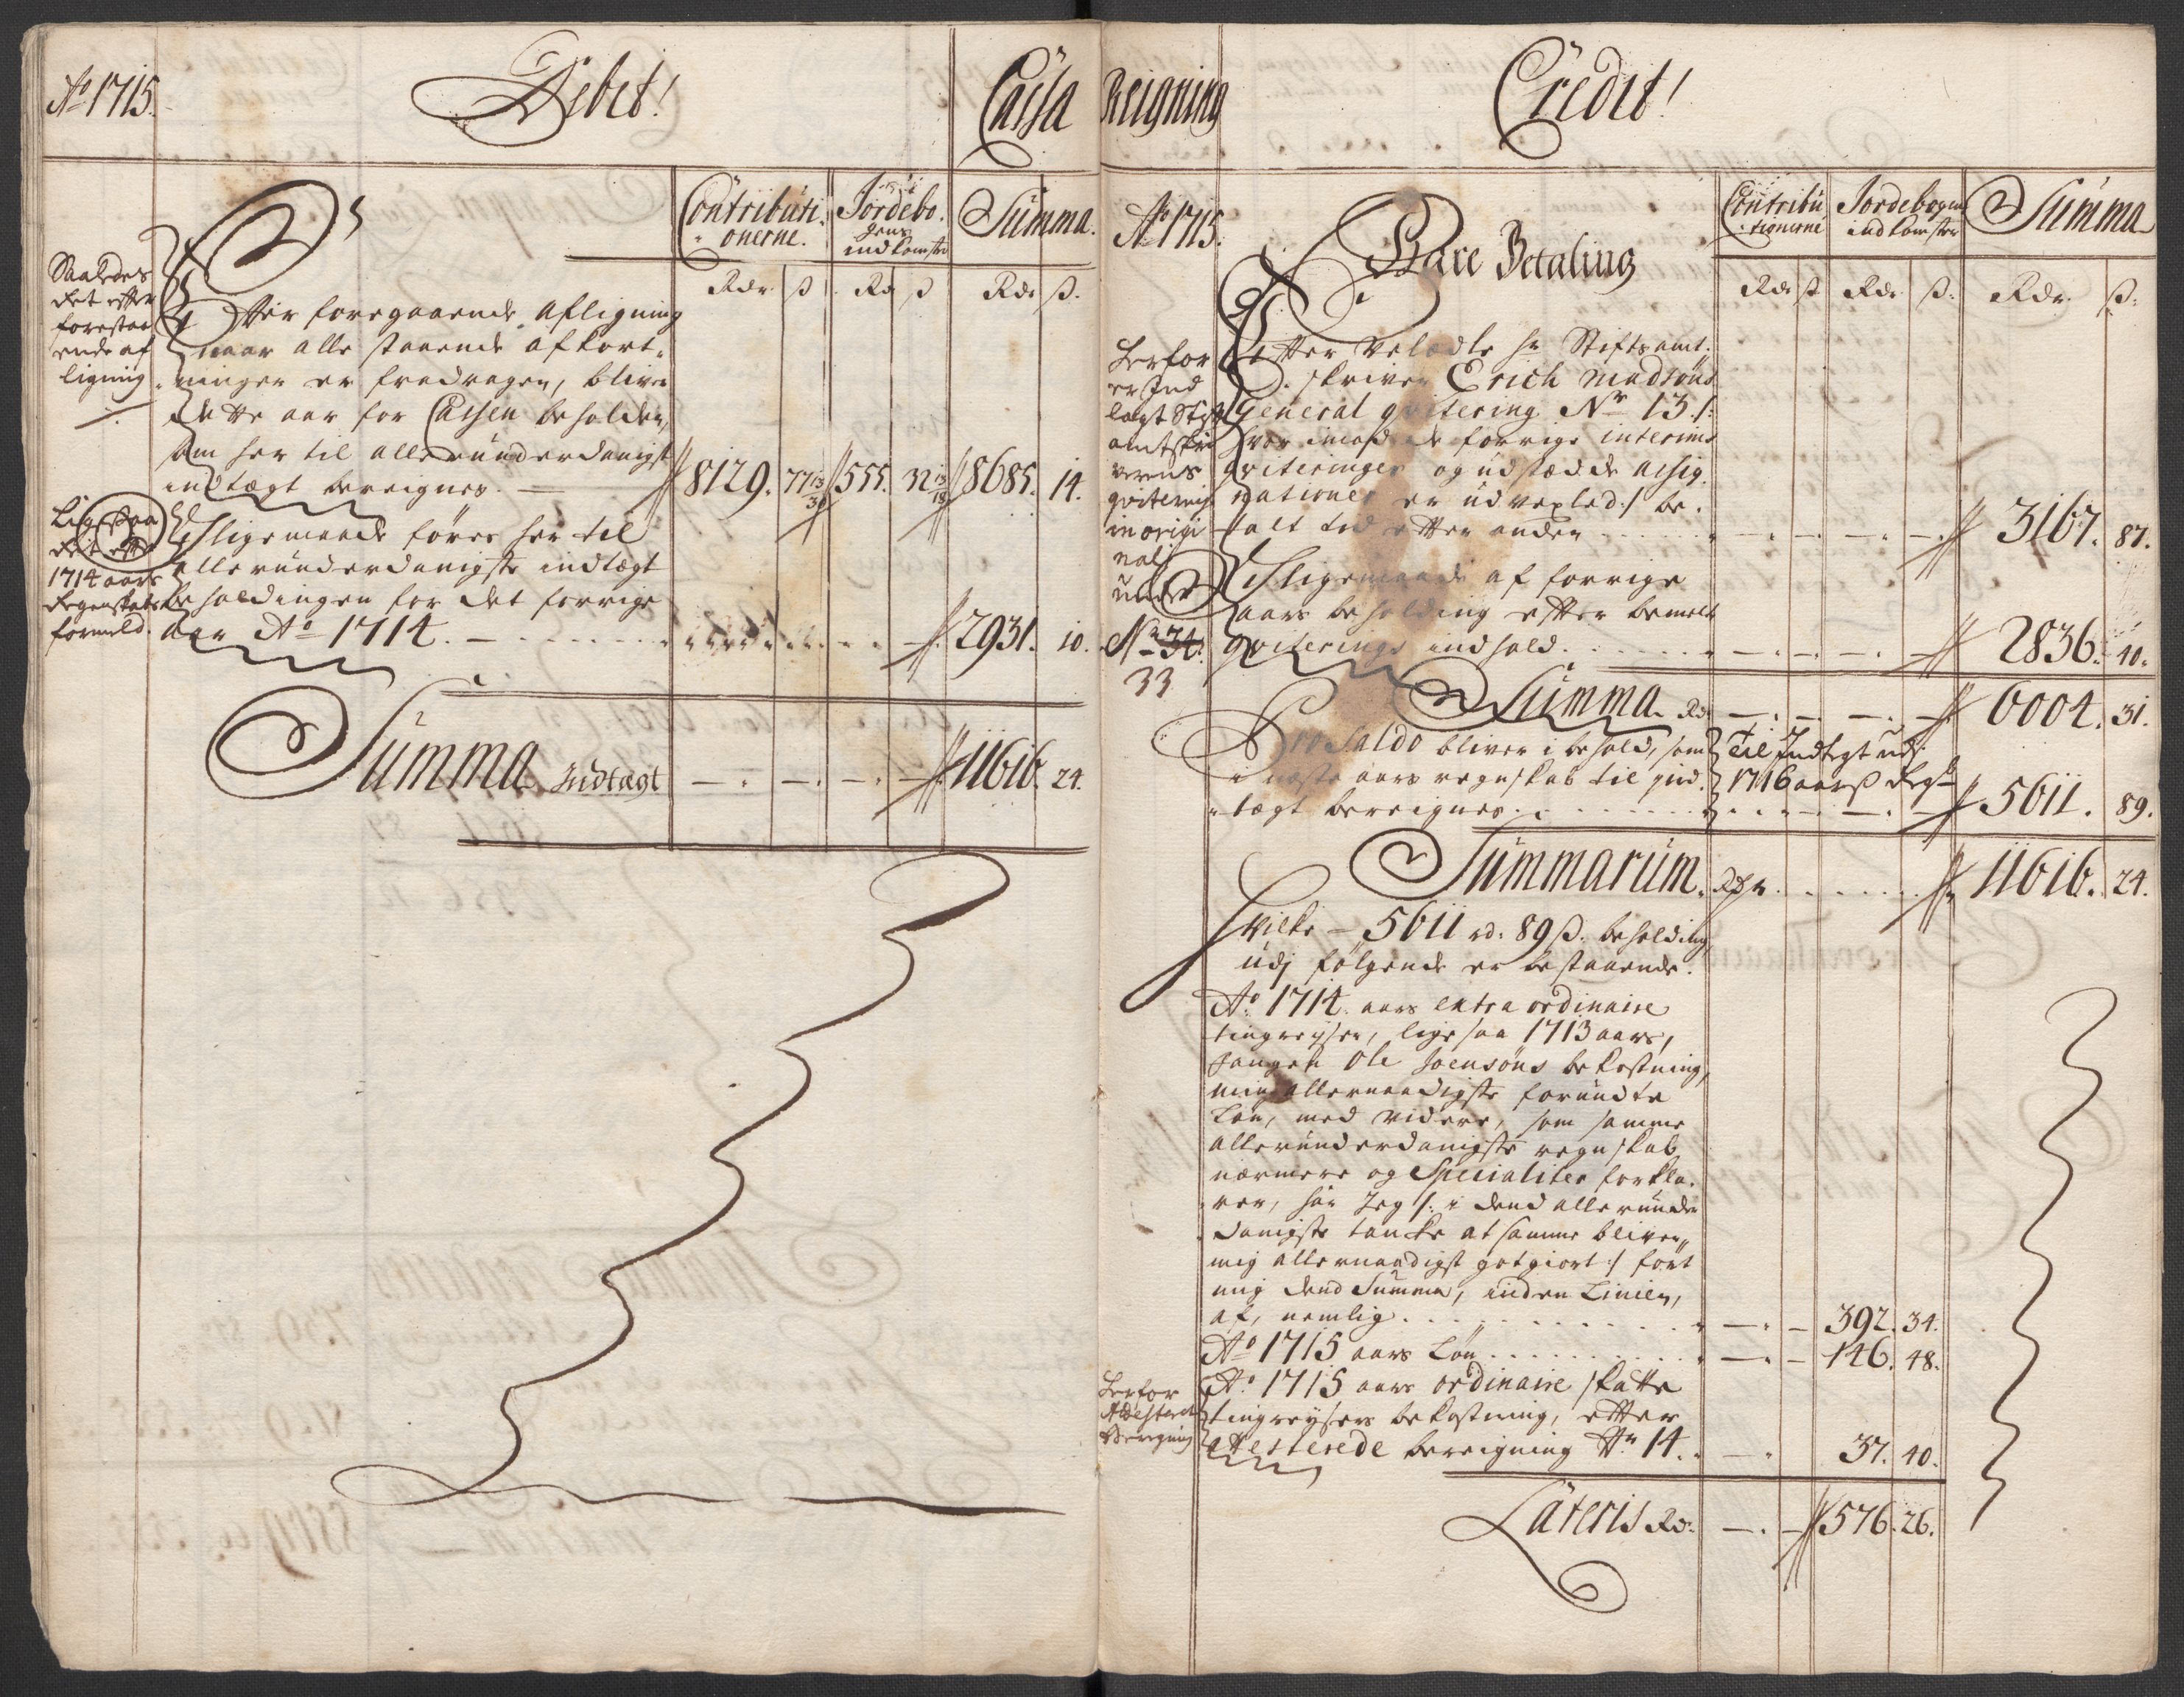 Ao 1715.
Debet!
Cassa
Contributi-
onerne.
Jordebo-
gens
indkomster
Summa.
Rdr ß Rd ß Rdr ß.
Saaledes
det efter
forestaa
ende af
ligning
Efter foregaaende Afligning
naar alle staaende afkort-
ninger er fradragen, bliver
dette aar for Cassen beholden,
som her til allerunderdanigst
indtægt bereignes. 8129. 77 13/30 555. 32 13/19 8685. 14.
Ligesaa
det efter
1714 aars
Regenskab
formeld.
Ligemaade føres her til
allerunderdanigste indtægt
beholdingen for det forrige
Aar Ao 1714. 2931. 10.
Summa Indtægt 11616. 24.
Reigning
Credit!
Ao 1715.
Contribu
tionerne
Jordebogens
indkomster
Summa
Bare Betaling
Rdr ß Rdr ß: Rdr. ß:
Herfor
er Ind
lagt Stift
amtskri
verens
qvitering
in origi
nali
under
No 34.
33
Efter Velædle hr Stiftsamt-
skriver Erich Madsøns
General qvitering Nr 13 /:
hvor imod de forrige interims
qviteringer og udstædde assig-
nationer er udvexled :/ be-
talt tid efter anden 3167. 87.
Ligemaade af forrige
aars beholding efter bemelte
qviterings indhold. 2836. 40.
Summa Rdr 6004. 31.
Pro Saldo bliver i behold, som
i næste aars regnskab til ind-
tægt bereignes. 5611. 89.
Til Indtegt udj
1716 aarß Regsk
Summarum Rdr. 11616. 24.
Hvilke – 5611 rd. 89 ß. beholding
udj følgende er bestaaende.
Ao 1714. aars extra ordinaire
tingreyser, lige saa 1713 aars,
fangen Ole Joensøns bekostning,
min allernaadigste forundte
Løn, med videre, som samme
allerunderdanigste regnskab
nærmere og Specialiter forkla-
rer, har Jeg /: i dend allerunder
danigste tancke at samme bliver
mig allernaadigst gotgiort :/ fort
mig dend Summa, inden Linien,
af, nemlig 392. 34.
Ao 1715 aars Løn 146. 48.
Herfor
Attesterit
Beregning
Ao 1715 aars ordinaire skatte
tingreysers bekostning, efter
attesterede bereigning Nr 14. 37. 40.
Lateris Rdr. 576. 26.